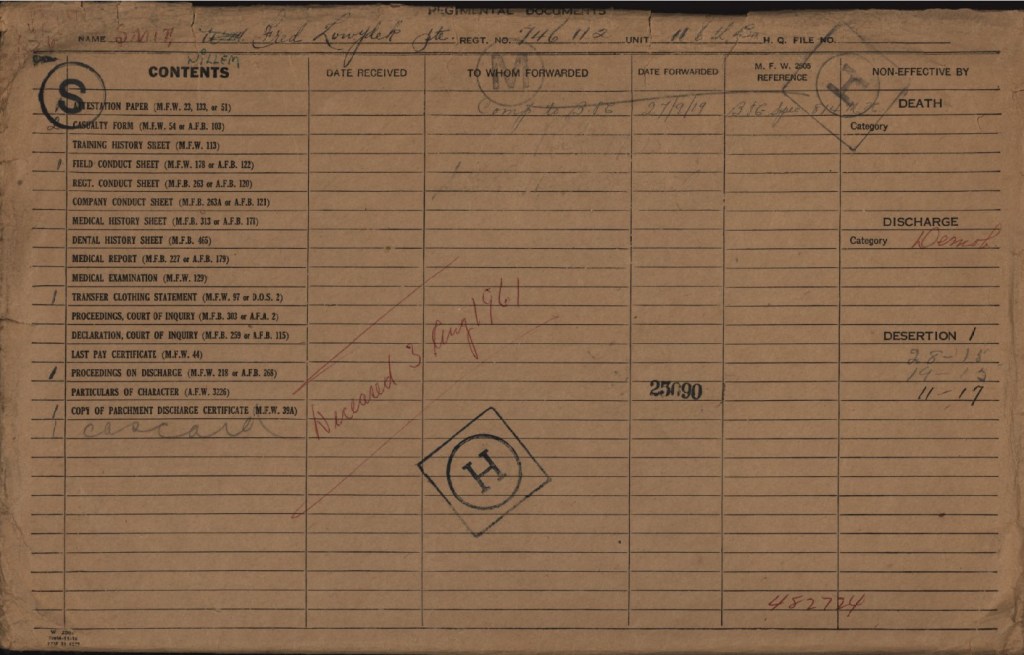 REGIMENTAL DOCUMENTS
NAME SMIT Fred Pte. REGT. NO. 746112 UNIT 116th H. Q. FILE NO.
WILLEM
CONTENTS DATE RECEIVED TO WHOM FORWARDED DATE FORWARDED M. F. W. 2505 REFERENCE NON-EFFECTIVE BY
S M H
ATTESTATION PAPER (M.F.W. 23, 133, or 51) Comp to B.P.C 27/9/19 DEATH
2 CASUALTY FORM (M.F.W. 54 or A.F.B. 103) Category
TRAINING HISTORY SHEET (M.F.W. 113)
1 FIELD CONDUCT SHEET (M.F.W. 178 or A.F.B. 122)
REGT. CONDUCT SHEET (M.F.B. 263 or A.F.B. 120)
COMPANY CONDUCT SHEET (M.F.B. 263A or A.F.B. 121)
MEDICAL HISTORY SHEET (M.F.B. 313 or A.F.B. 171) DISCHARGE
DENTAL HISTORY SHEET (M.F.B. 465) Category Demob.
MEDICAL REPORT (M.F.B. 227 or A.F.B. 179)
MEDICAL EXAMINATION (M.F.W. 129)
1 TRANSFER CLOTHING STATEMENT (M.F.W. 97 or D.O.S. 2)
PROCEEDINGS, COURT OF INQUIRY (M.F.B. 303 or A.F.A. 2)
DECLARATION, COURT OF INQUIRY (M.F.B. 259 or A.F.B. 115) DESERTION 1
LAST PAY CERTIFICATE (M.F.W. 44) 28-15
1 PROCEEDINGS ON DISCHARGE (M.F.W. 218 or A.F.B. 268) 19-13
PARTICULARS OF CHARACTER (A.F.W. 3226) 25090 11-17
1 COPY OF PARCHMENT DISCHARGE CERTIFICATE (M.F.W. 39A)
1 cascard
Deceased 3 Aug 1961
H
482724